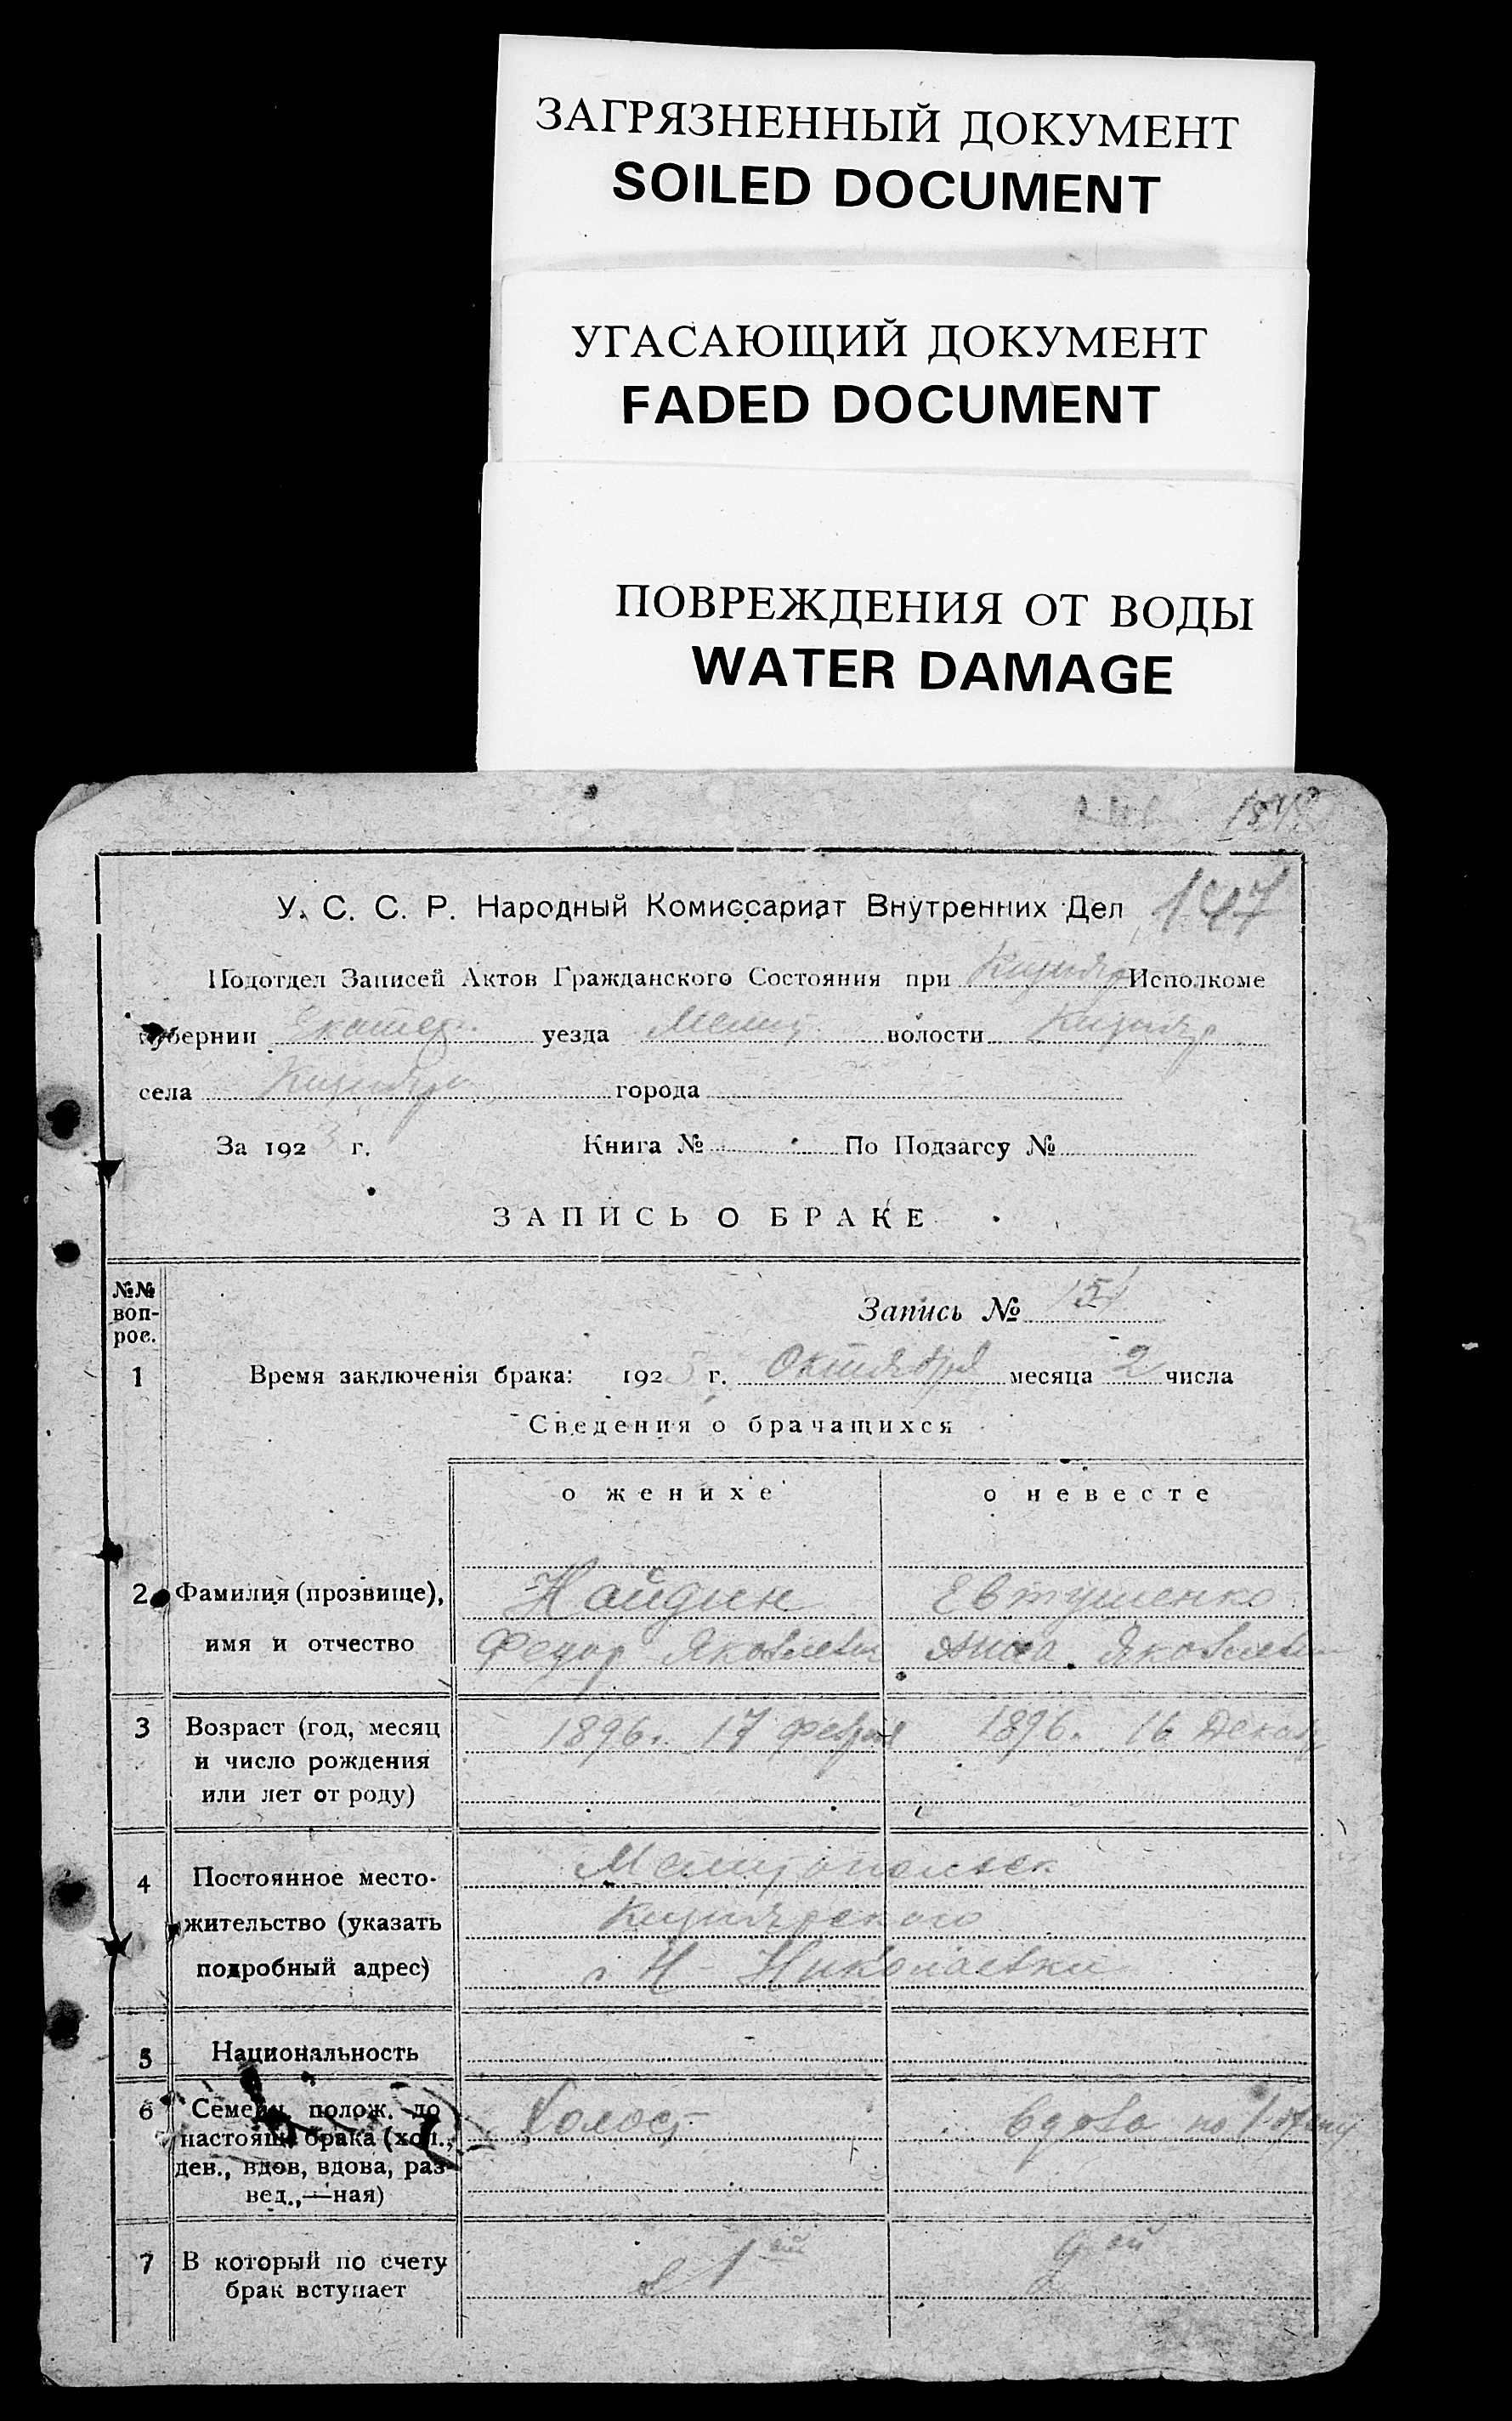 ЗАГРЯЗНЕННЫЙ ДОКУМЕНТ
SOILED DOCUMENT
УГАСАЮЩИЙ ДОКУМЕНТ
FADED DOCUMENT
ПОВРЕЖДЕНИЯ ОТ ВОДЫ
WATER DAMAGE
У. С. С. Р. Народный Комиссариат Внутренних Дел 147
Подотдел Записей Актов Гражданского Состояния при Исполкоме
губернии Екатер. уезда Мелит. волости
села города
За 1923 г. Книга № По Подзагсу №
ЗАПИСЬ О БРАКЕ
№№ вопрос.
Запись № 151
1 Время заключенія брака: 1923 г. Октября месяца 2 числа
Сведения о брачащихся
о женихе о невесте
2 Фамилия (прозвище), Найдин Евтушенко
имя и отчество Федор Яковлевич Анна Яковлевн
3 Возраст (год, месяц 1896 г. 17 феврал 1896 г. 16 Декаб
и число рождения
или лет от роду)
4 Постоянное место- Мелитопольск
жительство (указать
подробный адрес) с. Н-Николаевки
5 Национальность
6 Семейн. полож. до Холост вдова по 1
настоящ. брака (хол.,
дев., вдов, вдова, раз-
вед.,—ная)
7 В который по счету в 1ый
брак вступает